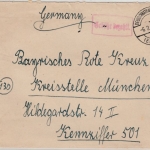 Germany
Bayrisches Rote Kreuz
Kreisstelle München
Hildegardstr 14 I
Kennziffer 501